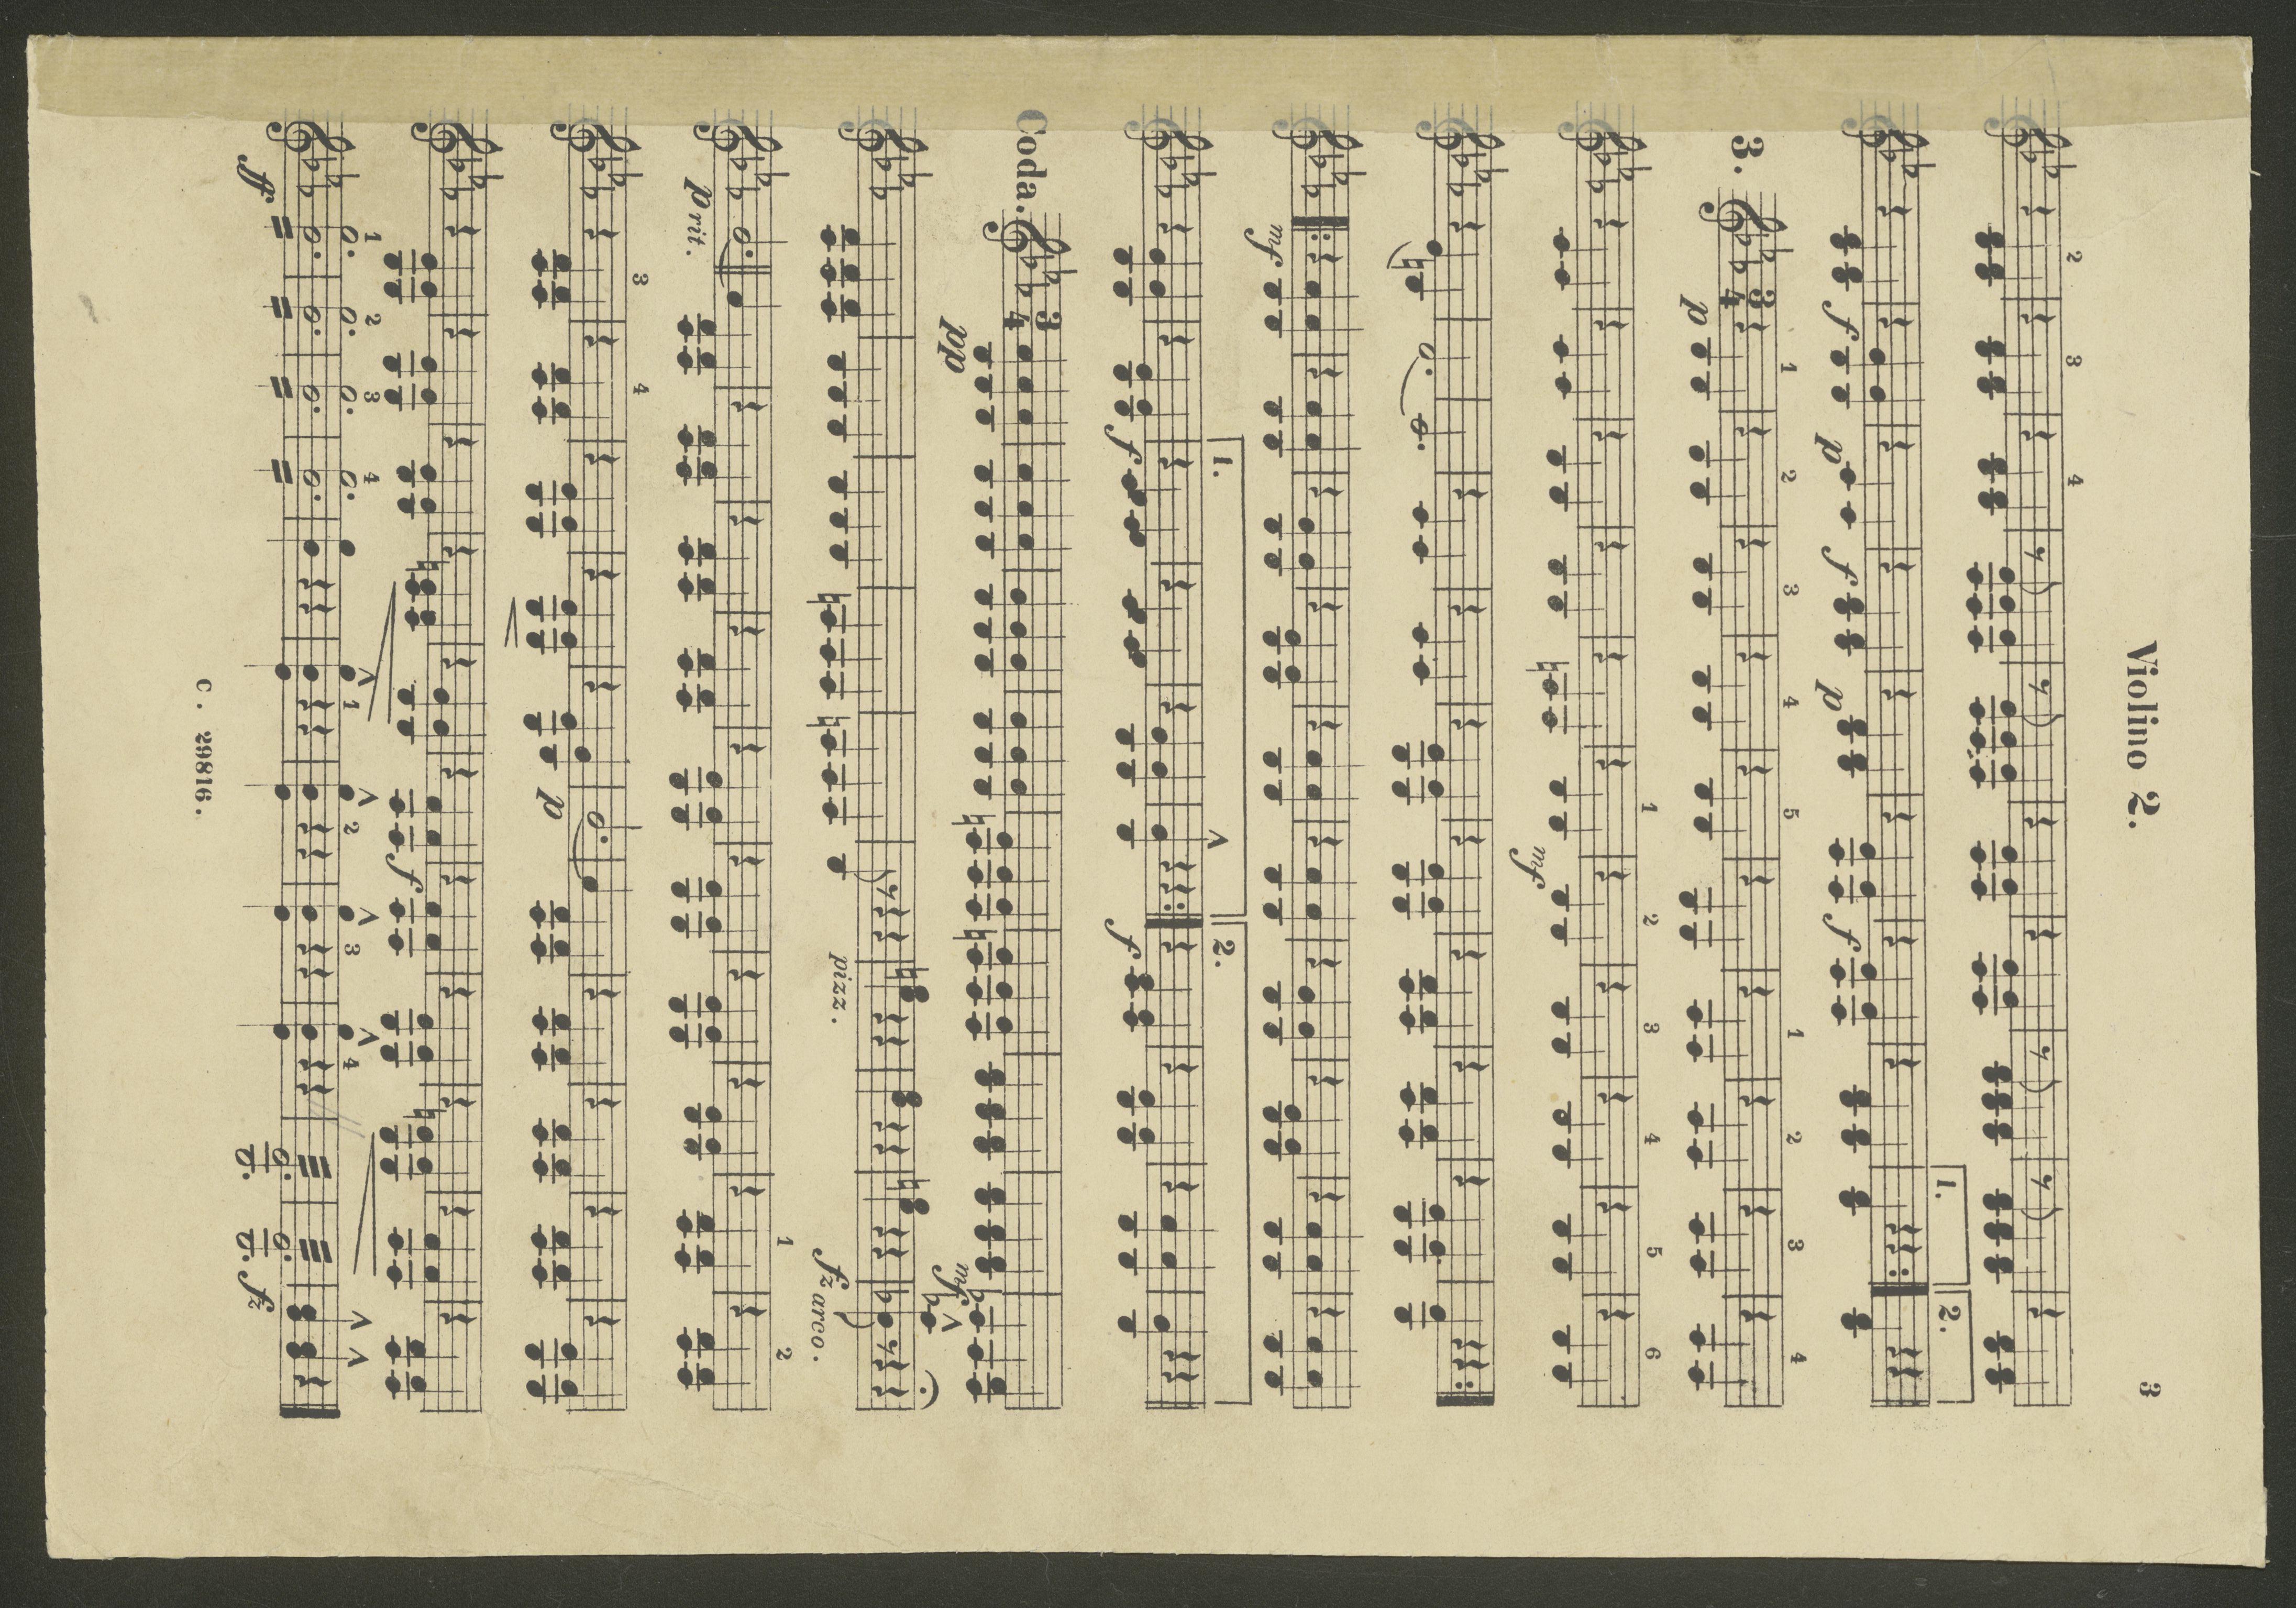 Violino 2. 3
2 3 4
1. 2.
f p f p f
3.
1 2 3 4 5 1 2 3 4
p
1 2 3 4 5 6
mf
mf
1. 2.
f f
Coda.
3/4
pp mf
pizz. fz arco.
1 2
p rit.
3 4
p
f
1 2 3 4 1 2 3 4
ff fz
C. 29816.